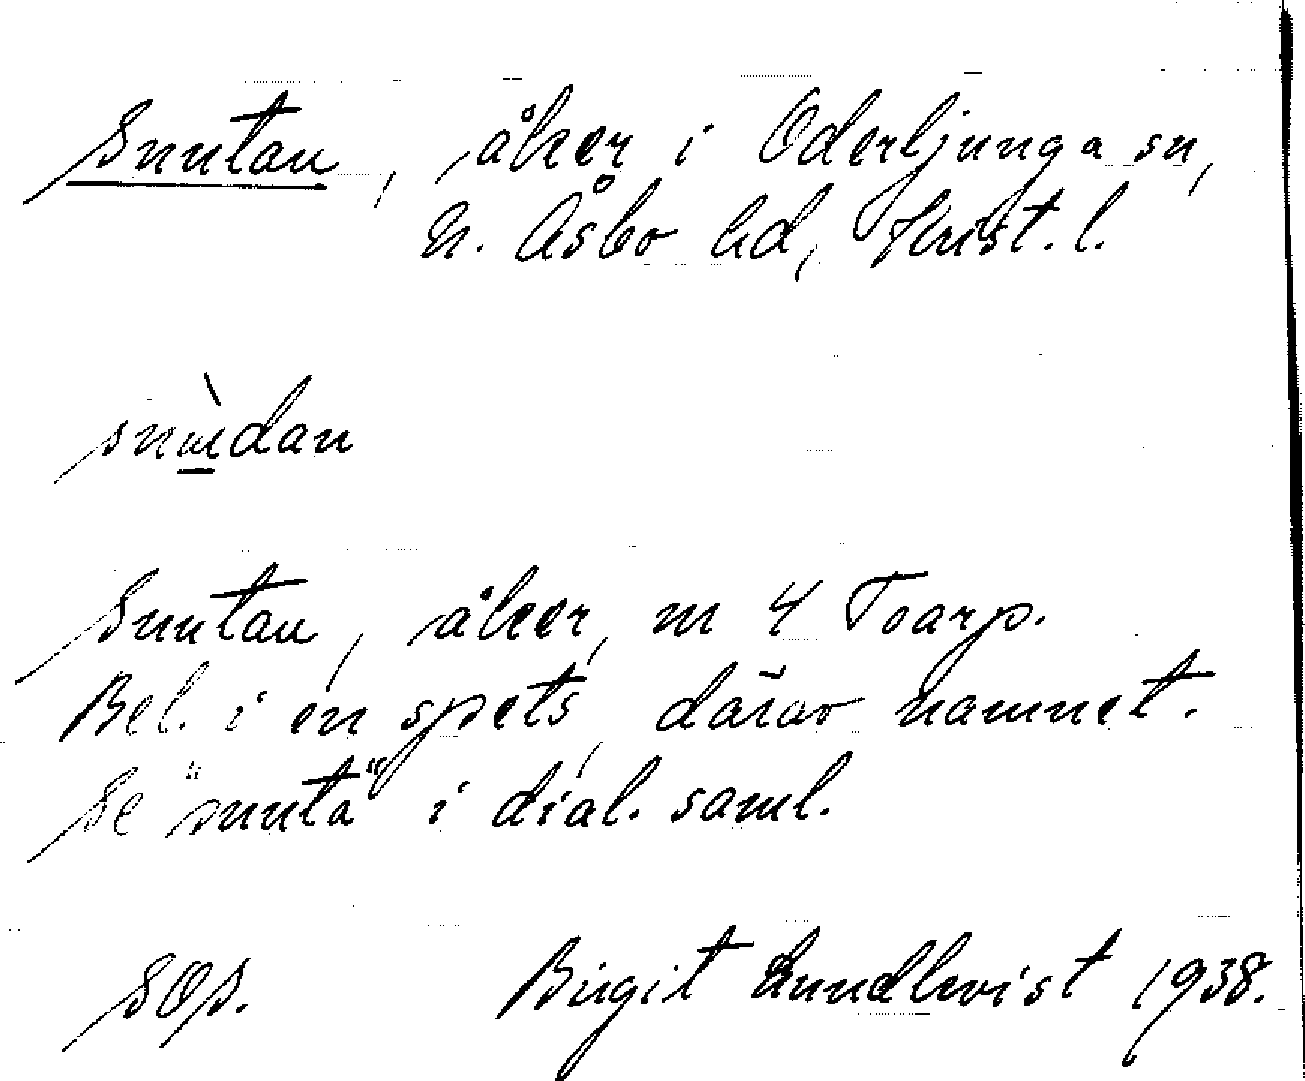 Snutan, åker i Oderljunga sn,
N. Åsbo hd, Krist. l.
snùdan
Snutan, åker, nr 4 Toarp.
Bel. i en spets, därav namnet.
Se "snuta" i dial. saml.
SOS. Birgit Lundkvist 1938.